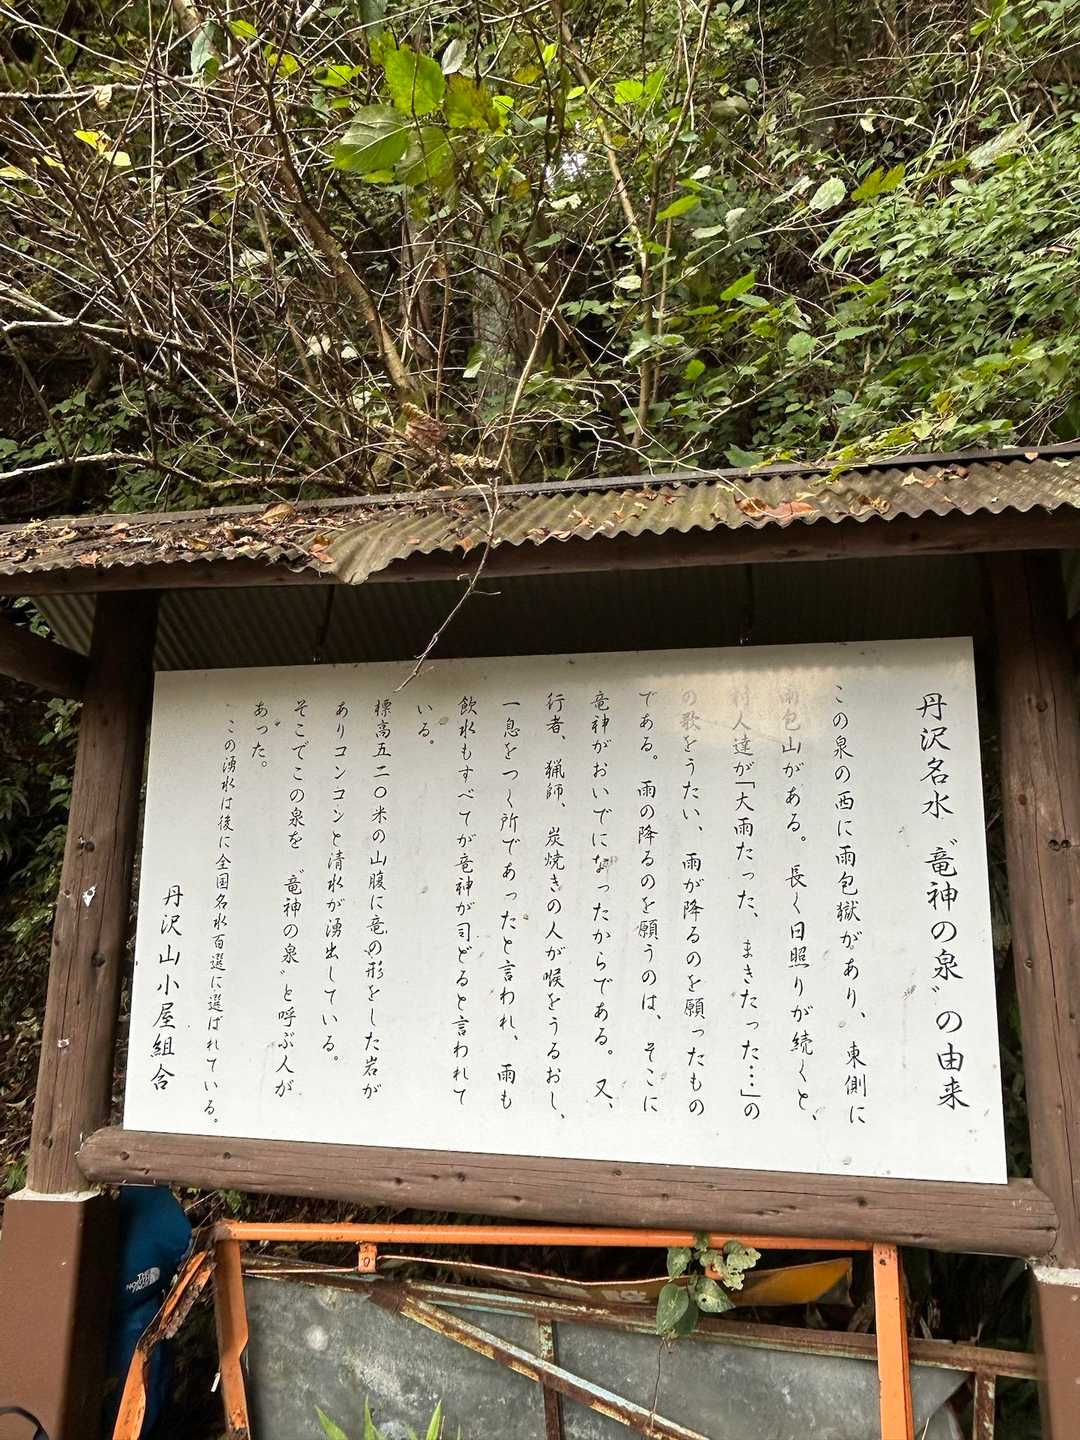 丹沢名水〝竜神の泉〟の由来
この泉の西に雨包獄があり、東側に
雨包山がある。長く日照りが続くと、
村人達が「大雨たった、まきたった…」の
の歌をうたい、雨が降るのを願ったもの
である。雨の降るのを願うのは、そこに
竜神がおいでになったからである。又、
行者、猟師、炭焼きの人が喉をうるおし、
一息をつく所であったと言われ、雨も
飲水もすべてが竜神が司どると言われて
いる。
標高五二〇米の山腹に竜の形をした岩が
ありコンコンと清水が湧出している。
そこでこの泉を〝竜神の泉〟と呼ぶ人が
あった。
この湧水は後に全国名水百選に選ばれている。
丹沢山小屋組合
THE NORTH FACE